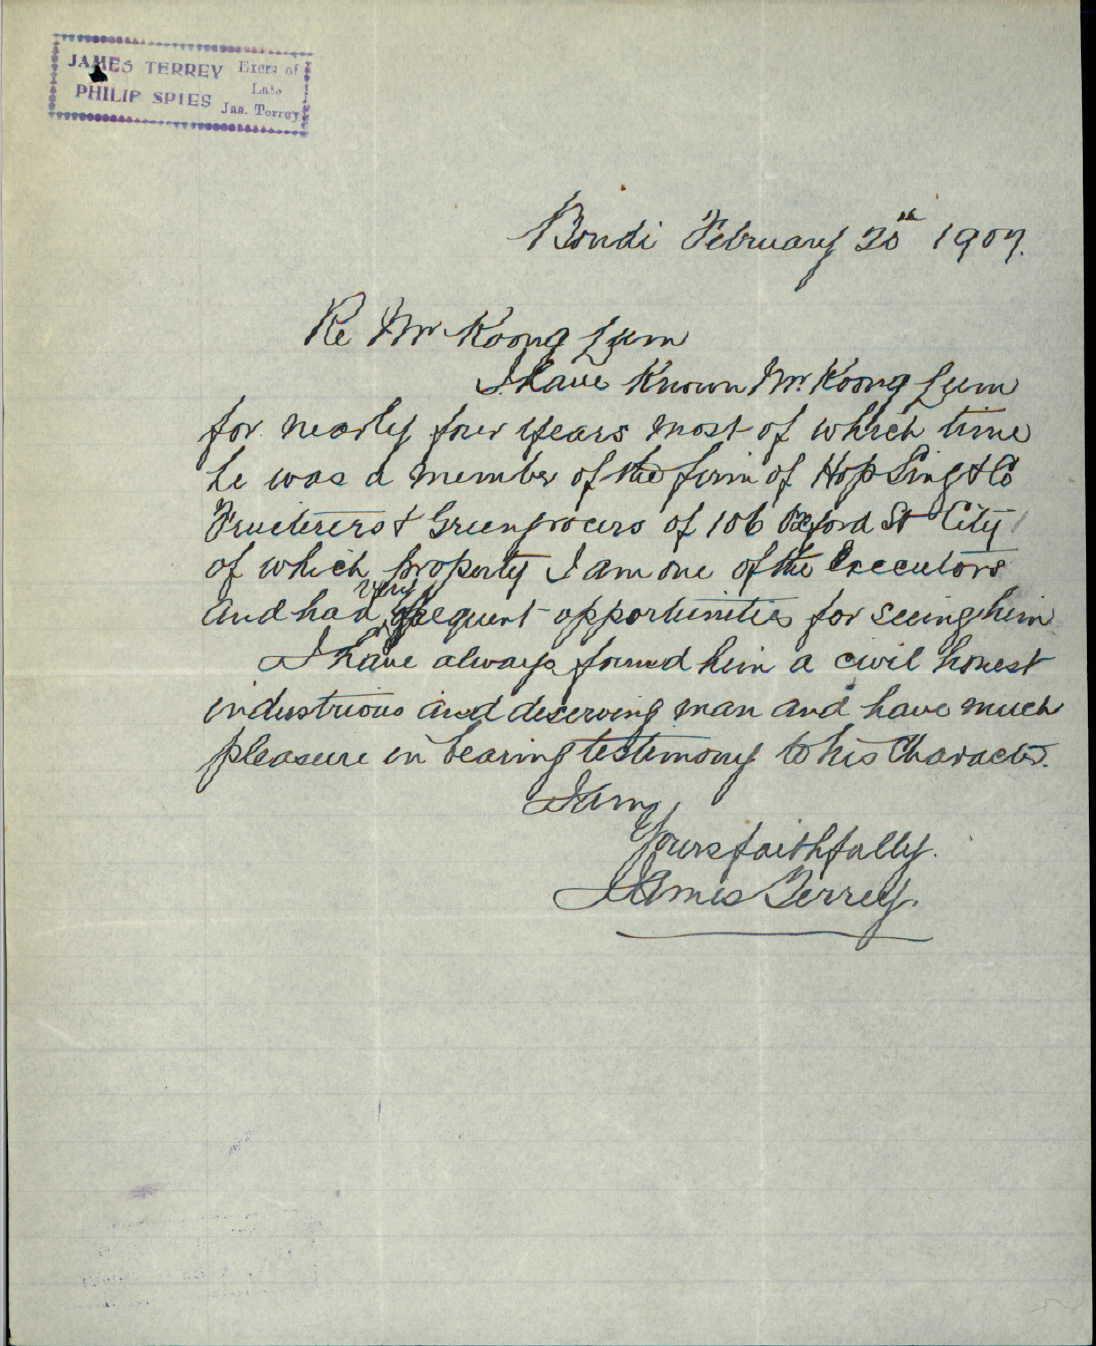 JAMES TERREY Exers of
Late
PHILIP SPIES Jas. Terrey
Bondi February 20th 1907.
Re Mr Koong Lum
I have Known Mr. Koong Lum
for nearly four years most of which time
he was a member of the firm of Hop Sing & Co
Fruiterers & Greengrocers of 106 Oxford St City
of which property I am one of the Executors
very
and had frequent opportunities for seeing him
I have always found him a civil honest
industrious and deserving man and have much
pleasure in bearing testimony to his Character.
I am
Yours faithfully.
James Terrey.